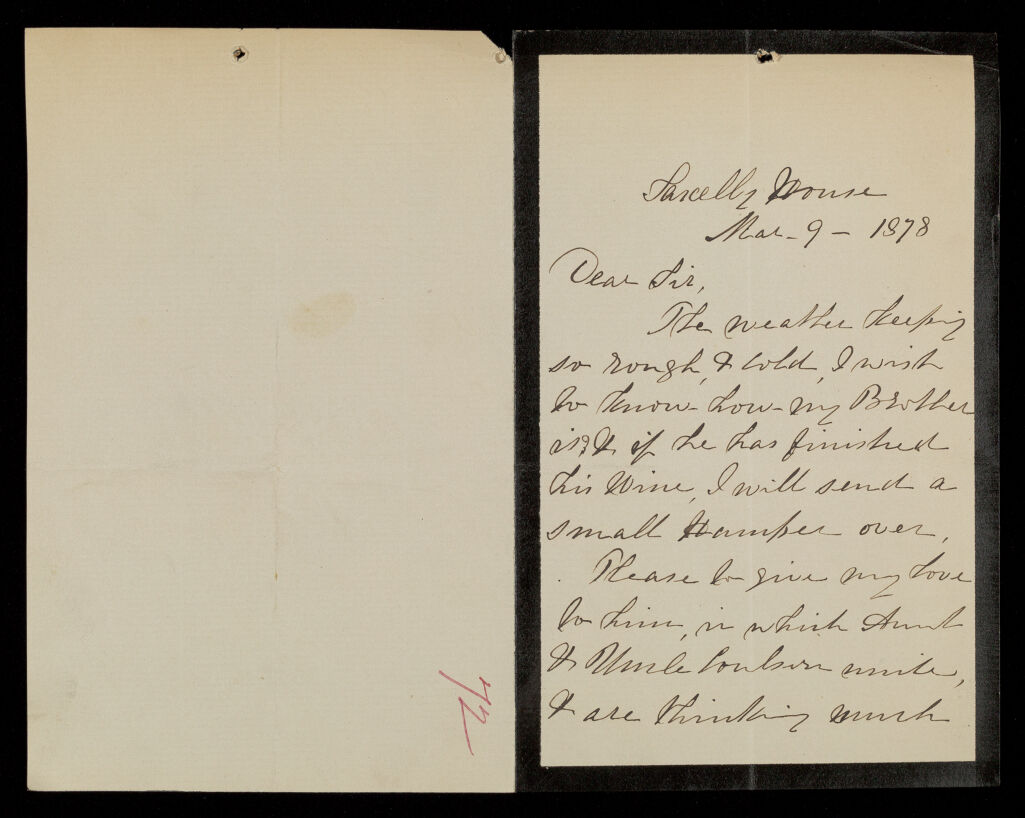 House
Mar - 9 - 1878
Dear Sir,
The weather keeping
so rough, & cold, I wish
to know how my Brother
is? & if he has finished
his Wine, I will send a
small Hamper over,
Please to give my love
to him, in which Aunt
& Uncle Coulson unite,
& are thinking much